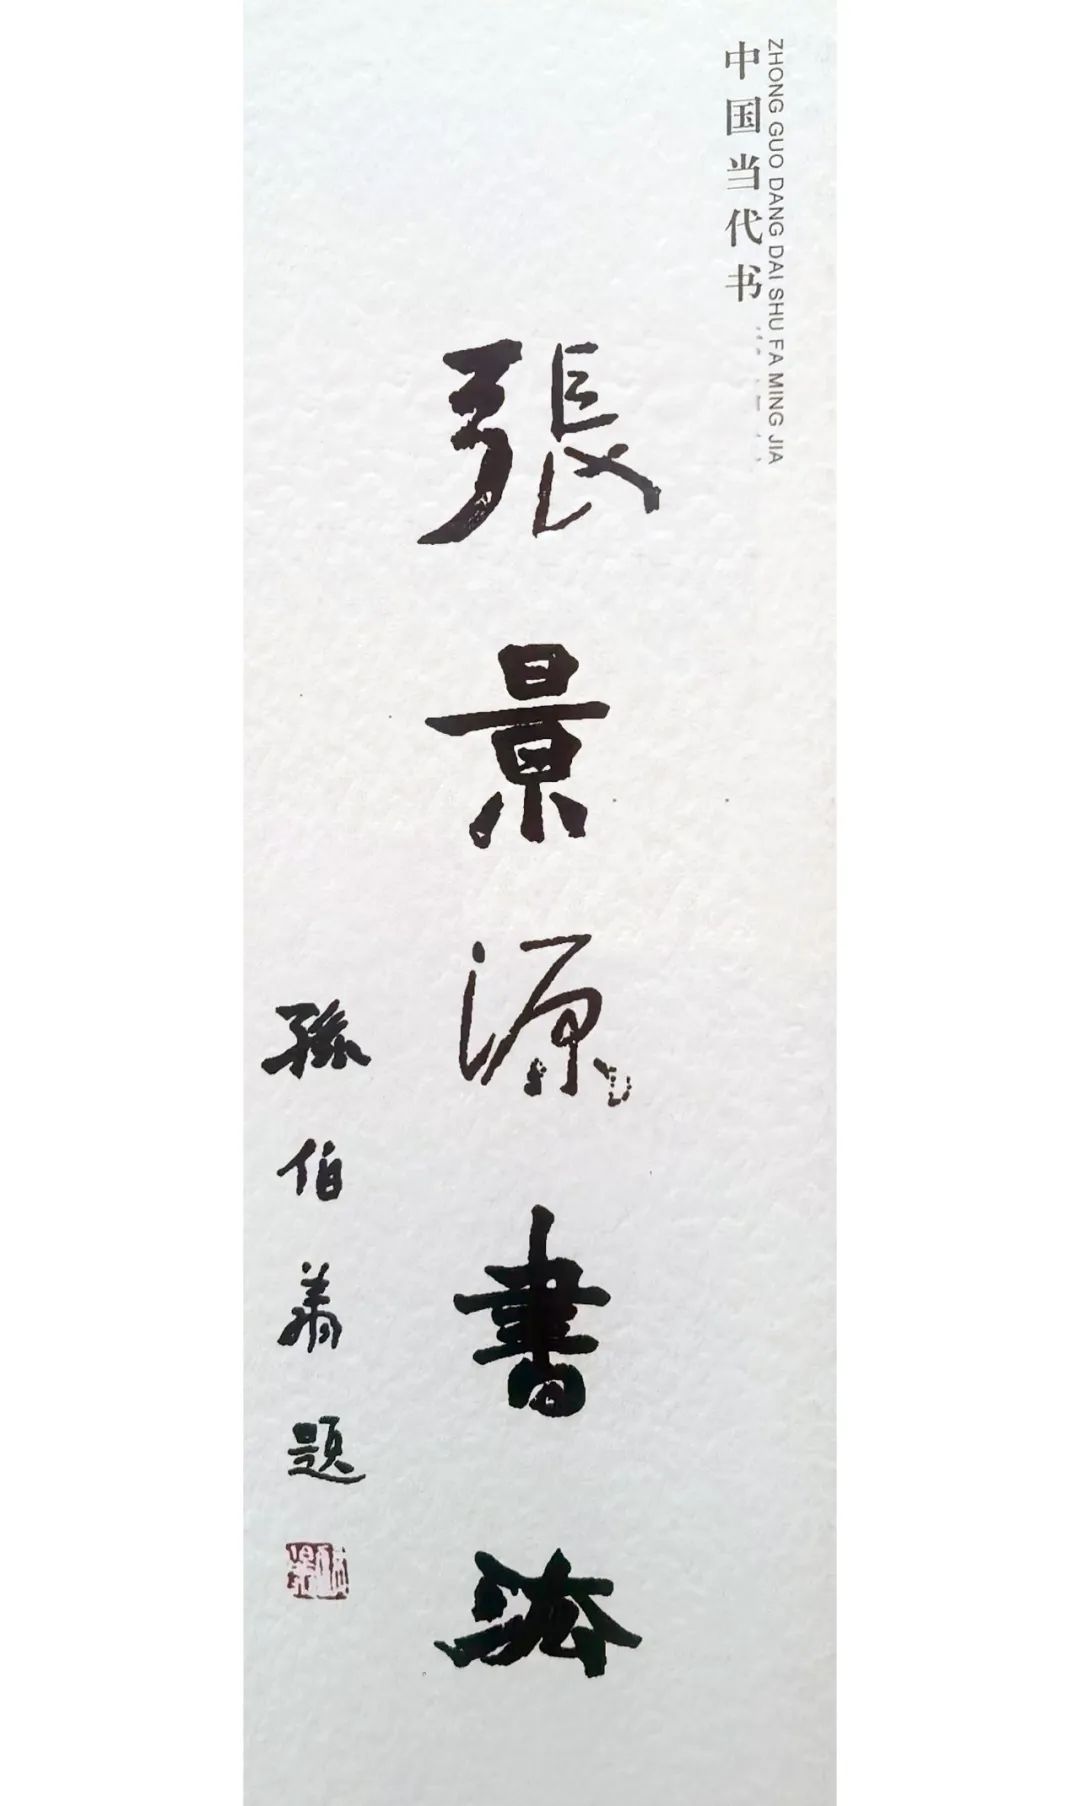 中国当代书
ZHONG GUO DANG DAI SHU FA MING JIA
張景源書法
孫伯翔題